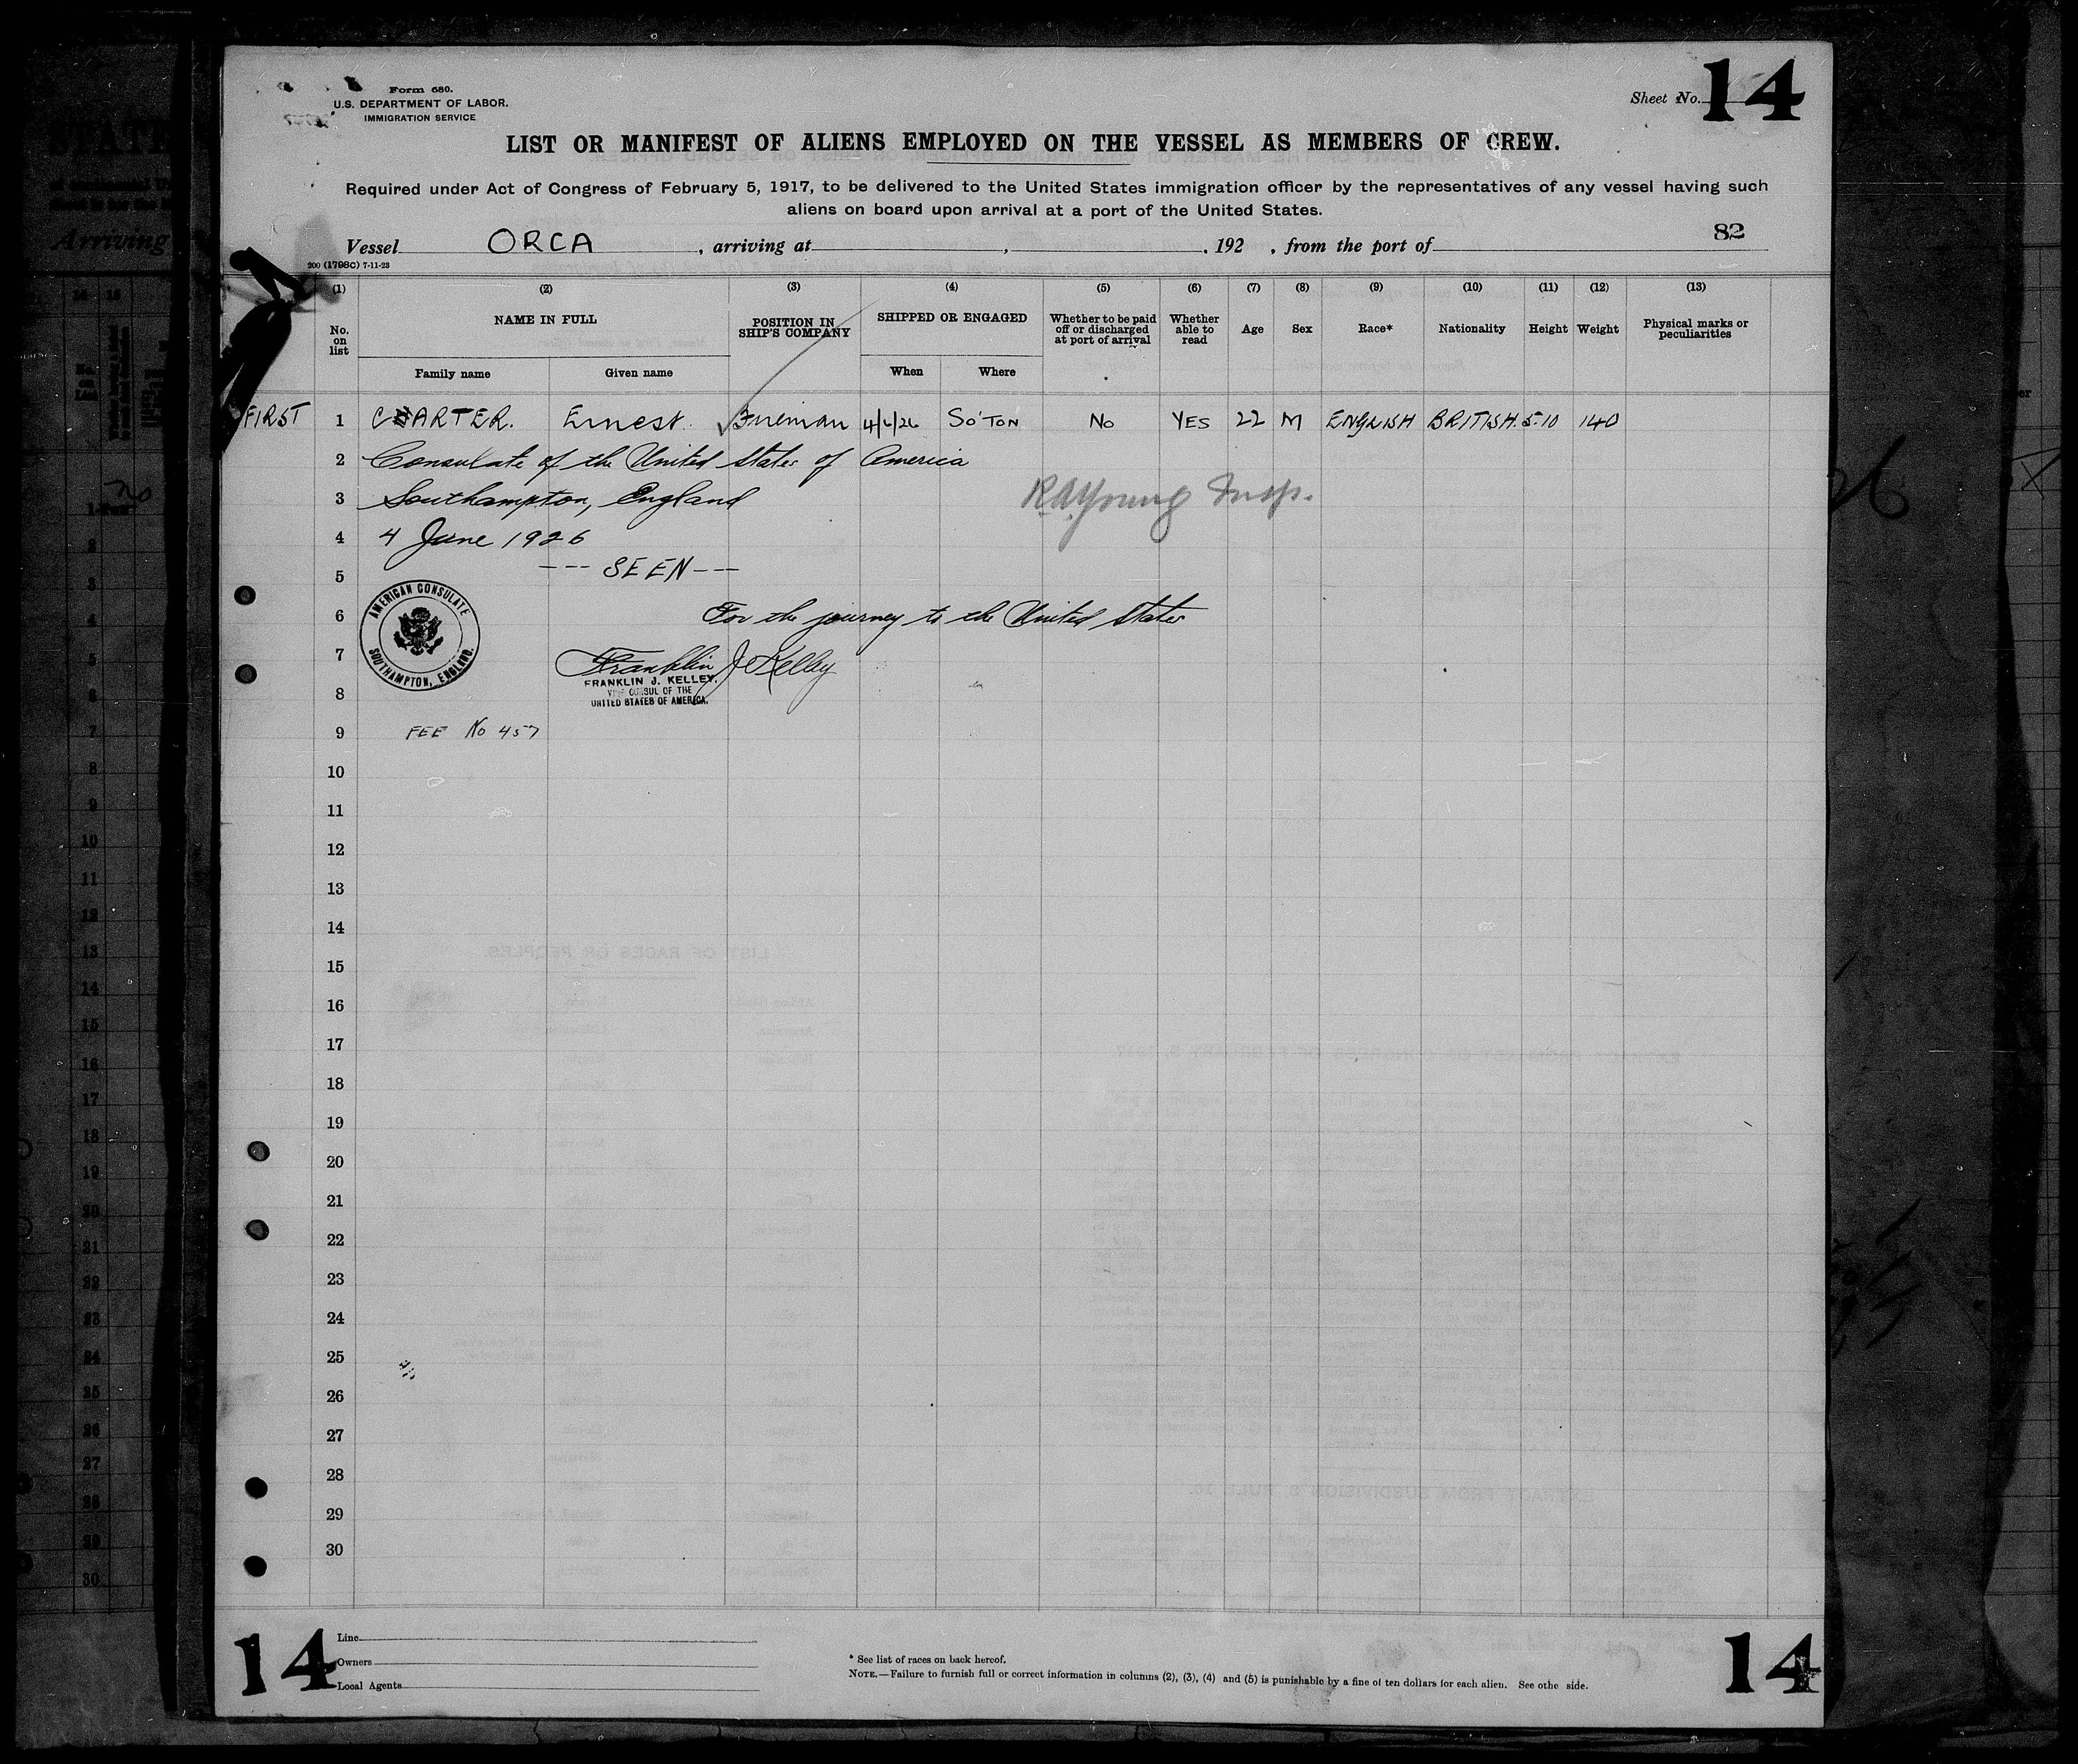 Form 680.
U.S. DEPARTMENT OF LABOR.
IMMIGRATION SERVICE
Sheet No. 14
LIST OR MANIFEST OF ALIENS EMPLOYED ON THE VESSEL AS MEMBERS OF CREW.
Required under Act of Congress of February 5, 1917, to be delivered to the United States immigration officer by the representatives of any vessel having such
aliens on board upon arrival at a port of the United States.
82
Vessel ORCA , arriving at , , 192 , from the port of
200 (1798C) 7-11-23
(1) (2) (3) (4) (5) (6) (7) (8) (9) (10) (11) (12) (13)
No. on list NAME IN FULL POSITION IN SHIP'S COMPANY SHIPPED OR ENGAGED Whether to be paid off or discharged at port of arrival Whether able to read Age Sex Race* Nationality Height Weight Physical marks or peculiarities
Family name Given name When Where
FIRST 1 CARTER. Ernest. Fireman 4/6/26 So'TON No YES 22 M ENGLISH BRITISH. 5-10 140
2 Consulate of the United States of America
3 Southampton, England R.A. Young Insp.
4 4 June 1926
5 --- SEEN ---
AMERICAN CONSULATE
SOUTHAMPTON, ENGLAND.
6 For the journey to the United States
7 Franklin J Kelley
FRANKLIN J. KELLEY.
8 VICE CONSUL OF THE
UNITED STATES OF AMERICA.
9 FEE No 457
10
11
12
13
14
15
16
17
18
19
20
21
22
23
24
25
26
27
28
29
30
14
Line
Owners
Local Agents
* See list of races on back hereof.
NOTE.—Failure to furnish full or correct information in columns (2), (3), (4) and (5) is punishable by a fine of ten dollars for each alien. See othe side.
14